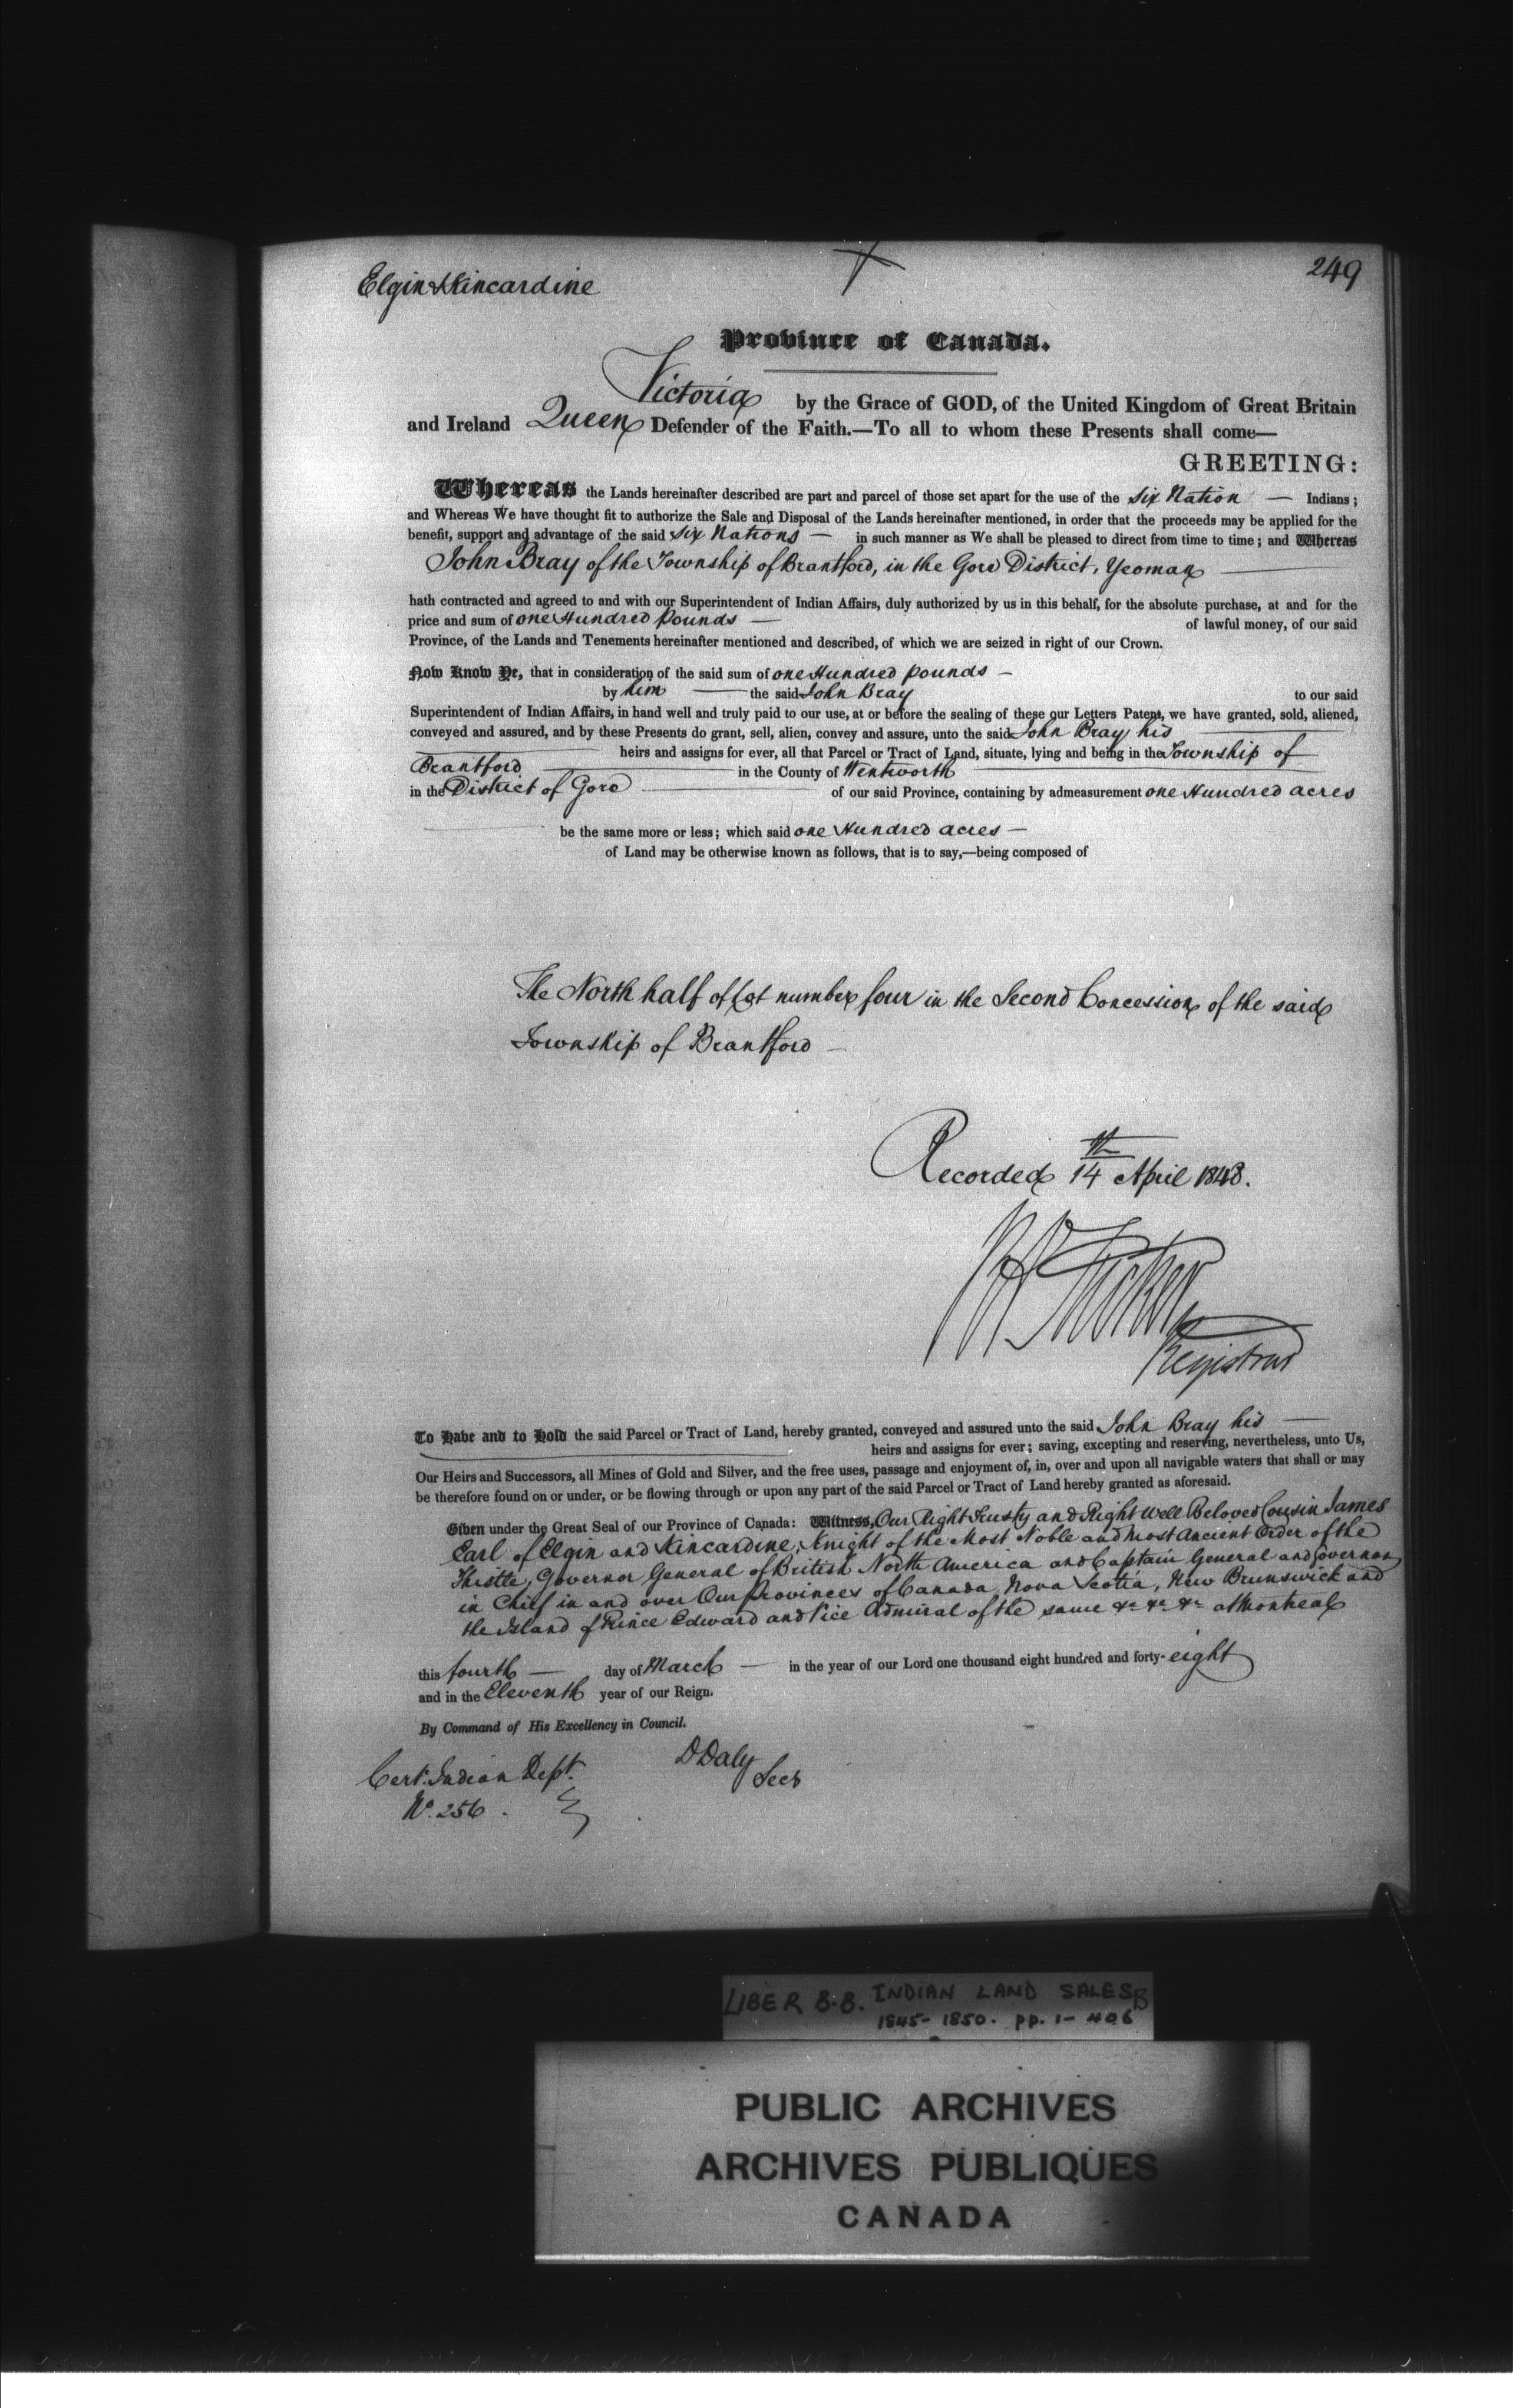 Elgin & Kincardine
249
Province of Canada.
Victoria by the Grace of GOD, of the United Kingdom of Great Britain
and Ireland Queen Defender of the Faith.—To all to whom these Presents shall come—
GREETING:
Whereas the Lands hereinafter described are part and parcel of those set apart for the use of the Six Nation — Indians;
and Whereas We have thought fit to authorize the Sale and Disposal of the Lands hereinafter mentioned, in order that the proceeds may be applied for the
benefit, support and advantage of the said Six Nations — in such manner as We shall be pleased to direct from time to time; and Whereas
John Bray of the Township of Brantford, in the Gore District, Yeoman
hath contracted and agreed to and with our Superintendent of Indian Affairs, duly authorized by us in this behalf, for the absolute purchase, at and for the
price and sum of one Hundred pounds — of lawful money, of our said
Province, of the Lands and Tenements hereinafter mentioned and described, of which we are seized in right of our Crown.
Now Know Ye, that in consideration of the said sum of one Hundred pounds —
by him — the said John Bray to our said
Superintendent of Indian Affairs, in hand well and truly paid to our use, at or before the sealing of these our Letters Patent, we have granted, sold, aliened,
conveyed and assured, and by these Presents do grant, sell, alien, convey and assure, unto the said John Bray his
heirs and assigns for ever, all that Parcel or Tract of Land, situate, lying and being in the Township of
Brantford in the County of Wentworth
in the District of Gore of our said Province, containing by admeasurement one Hundred acres
be the same more or less; which said one Hundred acres —
of Land may be otherwise known as follows, that is to say,—being composed of
The North half of Lot number four in the Second Concession of the said
Township of Brantford —
Recorded 14th April 1848.
Registrar
To Have and to Hold the said Parcel or Tract of Land, hereby granted, conveyed and assured unto the said John Bray his —
heirs and assigns for ever; saving, excepting and reserving, nevertheless, unto Us,
Our Heirs and Successors, all Mines of Gold and Silver, and the free uses, passage and enjoyment of, in, over and upon all navigable waters that shall or may
be therefore found on or under, or be flowing through or upon any part of the said Parcel or Tract of Land hereby granted as aforesaid.
Given under the Great Seal of our Province of Canada: Witness, Our Right Trusty and Right Well Beloved Cousin James
Earl of Elgin and Kincardine, Knight of the Most Noble and Most Ancient Order of the
Thistle, Governor General of British North America and Captain General and Governor
in Chief in and over Our Provinces of Canada, Nova Scotia, New Brunswick and
the Island of Prince Edward and Vice Admiral of the same &c &c &c at Montreal
this fourth — day of March — in the year of our Lord one thousand eight hundred and forty-eight
and in the Eleventh year of our Reign.
By Command of His Excellency in Council.
D Daly
Secy
Cert. Indian Dept.
No. 256.
LIBER B.B. INDIAN LAND SALES B
1845-1850. pp. 1-406
PUBLIC ARCHIVES
ARCHIVES PUBLIQUES
CANADA